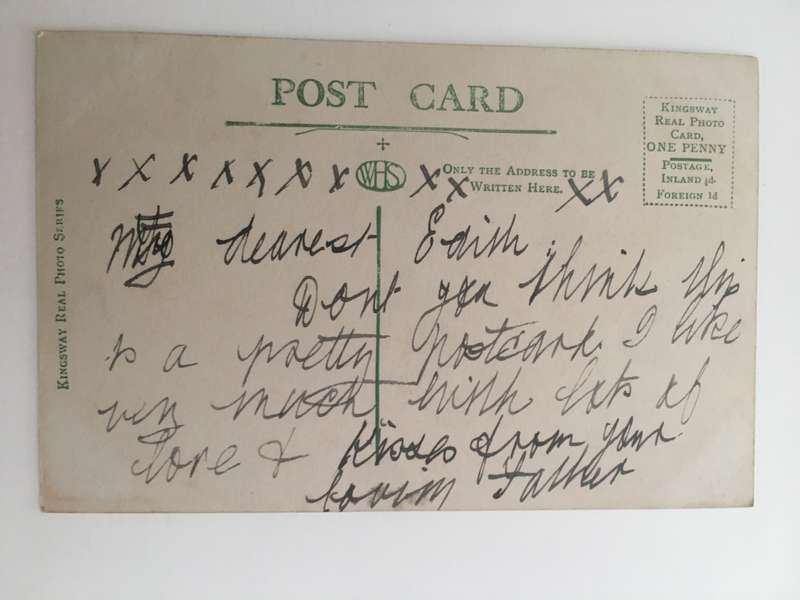 POST CARD
KINGSWAY
REAL PHOTO
CARD,
ONE PENNY
POSTAGE,
INLAND ½d.
FOREIGN 1d
x x x x x x x WHS x x x x
ONLY THE ADDRESS TO BE
WRITTEN HERE.
KINGSWAY REAL PHOTO SERIES
My dearest Edith.
Dont you think this
is a pretty postcard I like
very much with lots of
love & kisses from your
loving Father